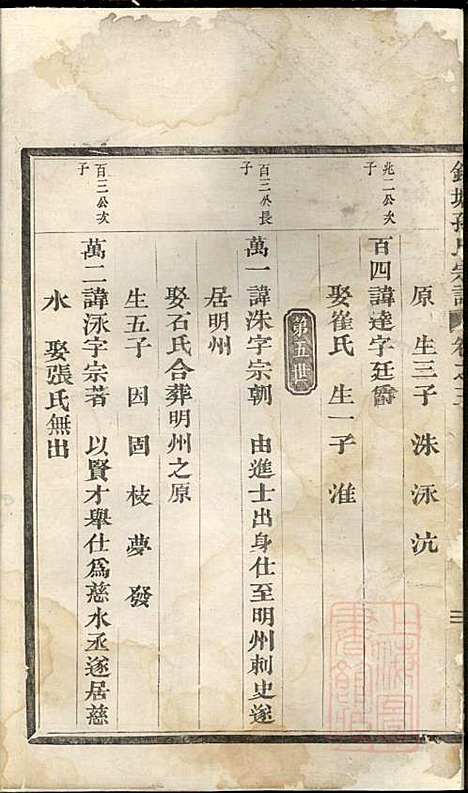 孫氏宗譜 卷之五
原 生三子 洙泳沆
兆二公次子
百四諱達字廷爵
娶崔氏 生一子 淮
第五世
百三公長子
萬一諱洙字宗朝 由進士出身仕至明州刺史遂
居明州
娶石氏合葬明州之原
生五子 因固枝夢發
百三公次子
萬二諱泳字宗著 以賢才舉仕爲慈水丞遂居慈
水 娶張氏無出